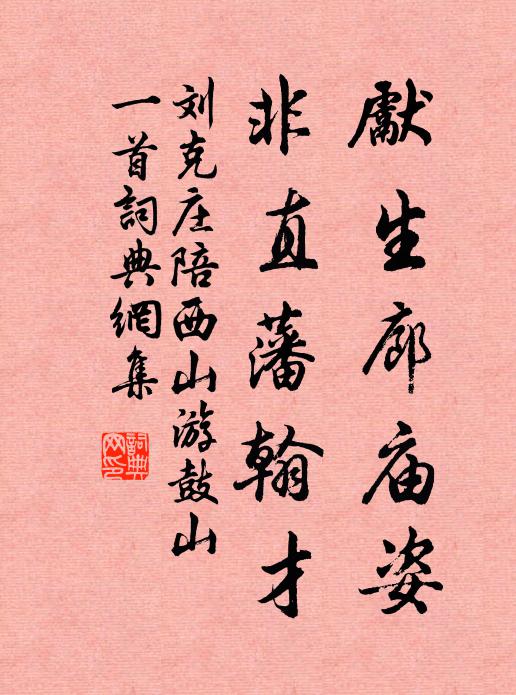 獻生廊庙姿
非直藩翰才
刘克庄陪西山游鼓山
一首詞典網集
詞典網印